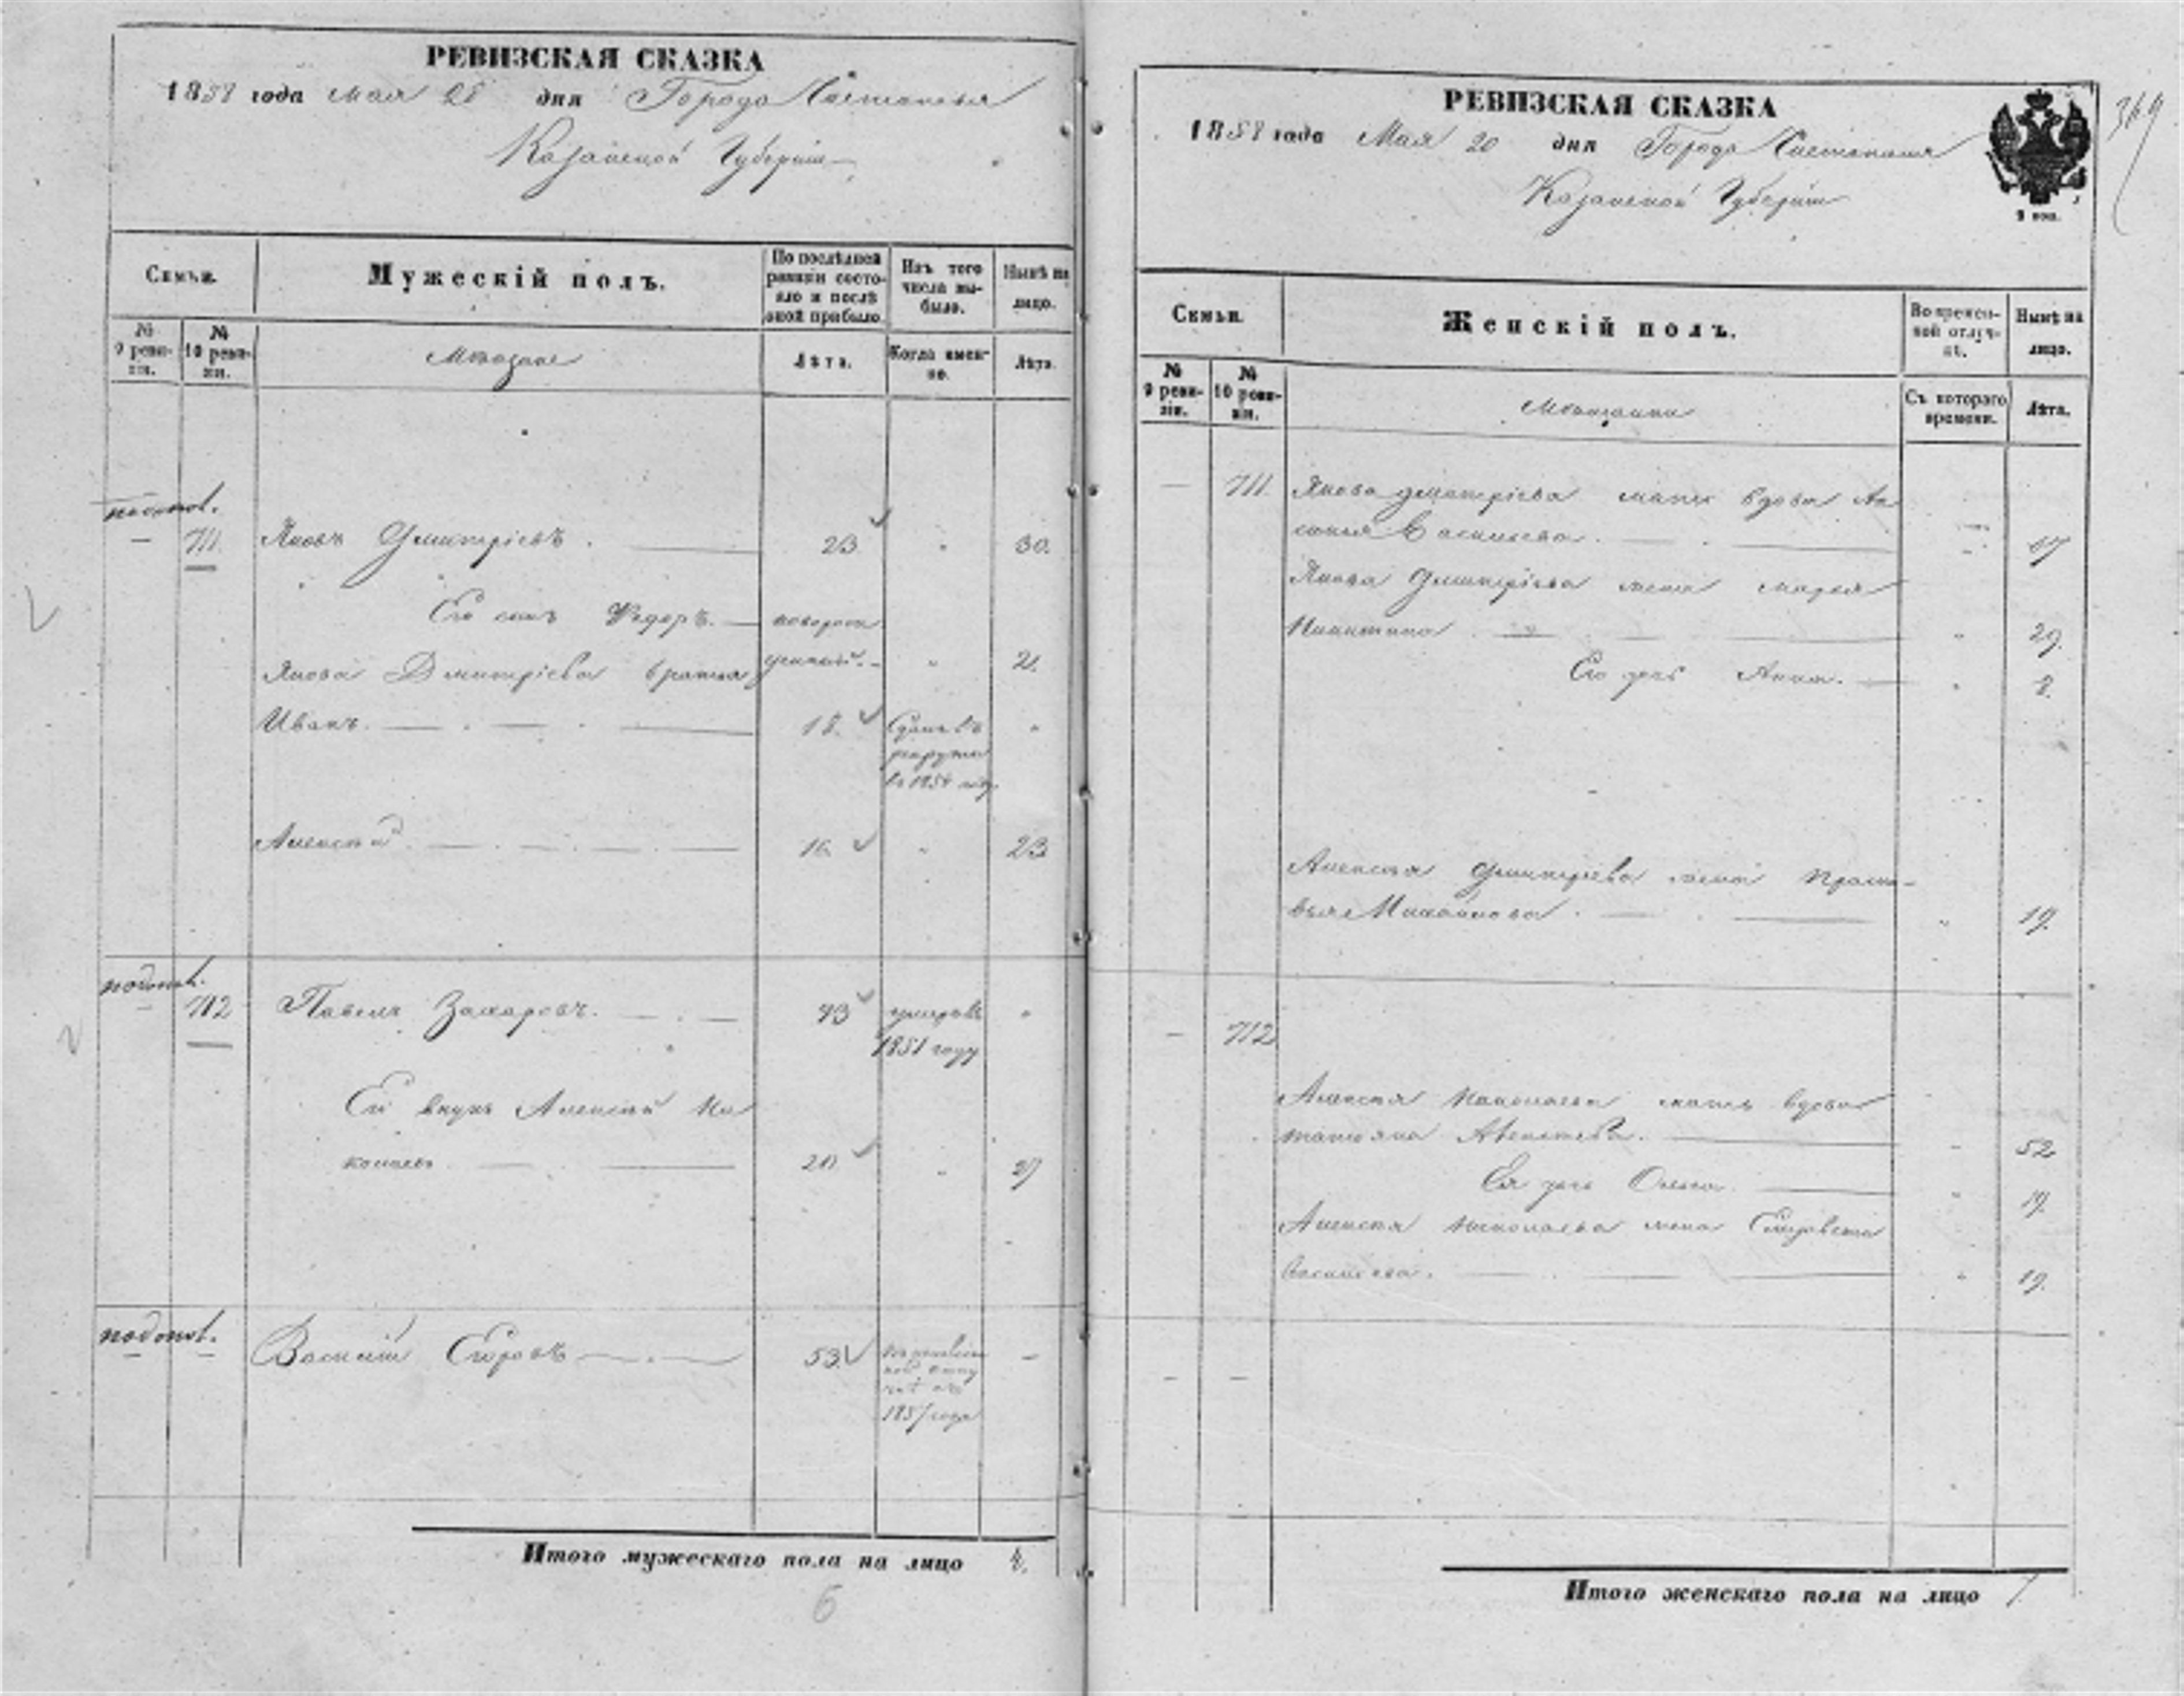 РЕВИЗСКАЯ СКАЗКА
1858 года Мая 20 дня Города Чистополя
Казанской Губернiи
Семьи.
Мужескiй полъ.
По послѣдней ревизiи состояло и послѣ оной прибыло.
Изъ того числа выбыло.
Нынѣ на лицо.
№ 9 ревизiи.
№ 10 ревизiи.
Мѣщане
Лѣта.
Когда именно.
Лѣта.
711. Яковъ Дмитрiевъ. 23 30.
Его сынъ Федоръ. новорож
Якова Дмитрiева братья денный. 2.
Иванъ. 18. Сданъ въ
рекруты
въ 1854 году
Алексѣй 16 23
712 Павелъ Захаровъ. умеръ въ
1851 году
Его внукъ Алексѣй Ни
колаевъ 20 27
Василiй Егоровъ 53.
1857 года
Итого мужескаго пола на лицо 4.
6
РЕВИЗСКАЯ СКАЗКА
369
1858 года Мая 20 дня Города Чистополя
Казанской Губернiи
Семьи.
Женскiй полъ.
Во временной отлучкѣ.
Нынѣ на лицо.
№ 9 ревизiи.
№ 10 ревизiи.
Мѣщанки
Съ котораго времени.
Лѣта.
711. Якова Дмитрiева мать вдова
Васильева.
Якова Дмитрiева жена Марья
Никитина 29.
Его дочь Анна.
Алексѣя Дмитрiева жена Праско-
вья Михайлова. 19.
712
Алексѣя Николаева мать вдова
Татьяна Алексѣева. 52
Ея дочь Ольга. 19.
Алексѣя Николаева жена Елизавета
Васильева. 19.
Итого женскаго пола на лицо 7